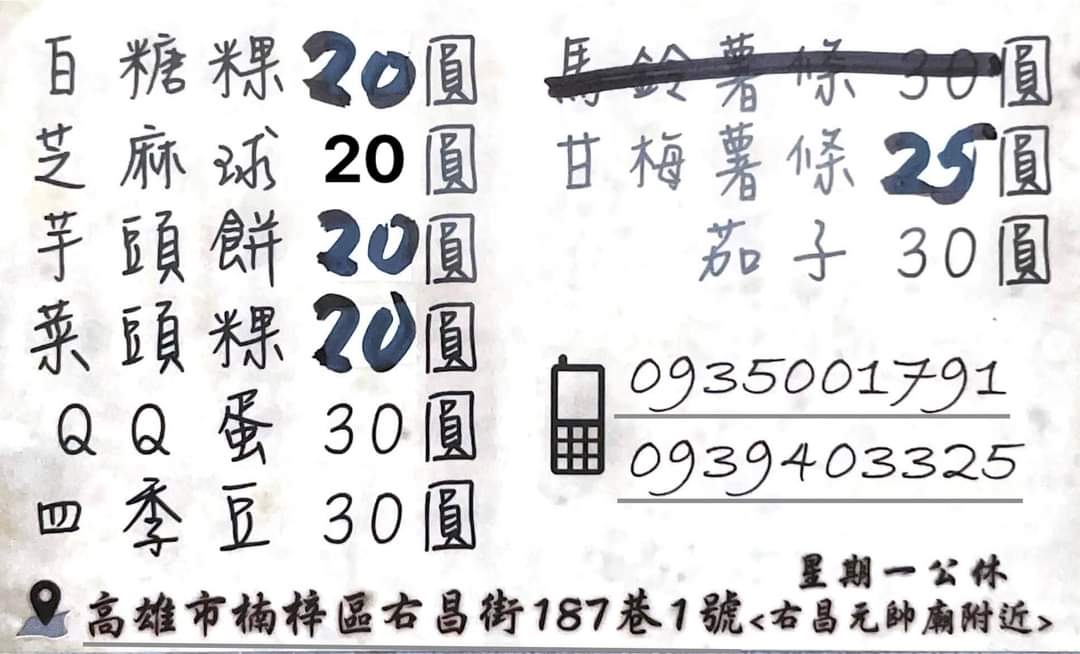 白糖粿 20 圓
芝麻球 20 圓
芋頭餅 20 圓
菜頭粿 20 圓
QQ蛋 30 圓
四季豆 30 圓
馬鈴薯條 30 圓
甘梅薯條 25 圓
茄子 30 圓
0935001791
0939403325
星期一公休
高雄市楠梓區右昌街187巷1號<右昌元帥廟附近>